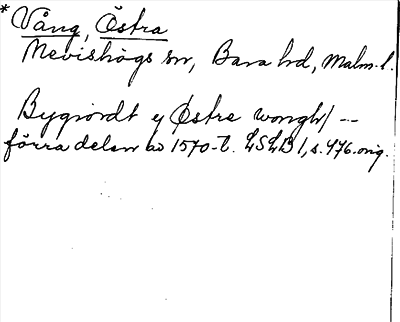 * Vång, Östra
Nevishögs sn, Bara hd, Malm. l.
Bygiordt y Østre wongh/ --
förra delen av 1570-t. LSLB 1, s. 476. orig.